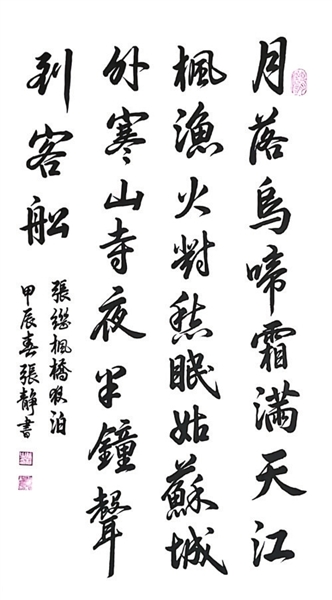 月落烏啼霜滿天江
楓漁火對愁眠姑蘇城
外寒山寺夜半鐘聲
到客船
張繼楓橋夜泊
甲辰春張靜書